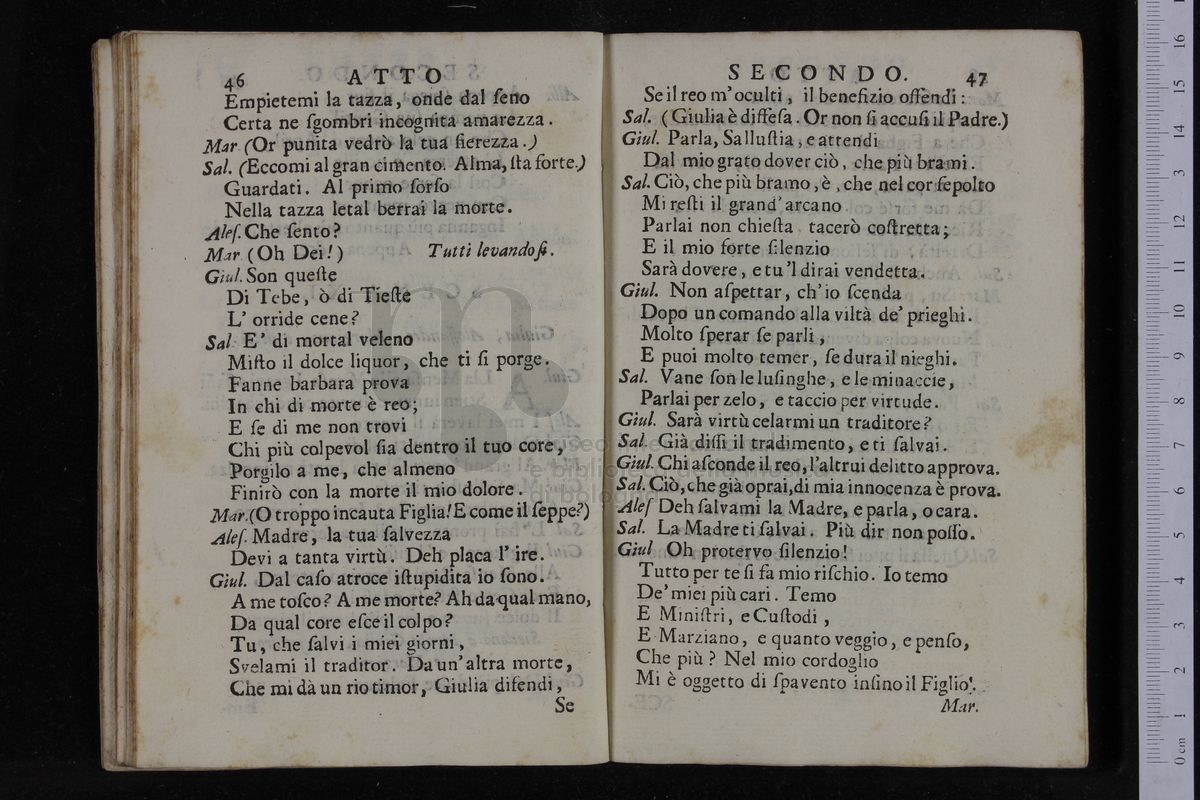 46 ATTO
Empietemi la tazza, onde dal ſeno
Certa ne ſgombri incognita amarezza.
Mar (Or punita vedrò la tua fierezza.)
Sal. (Eccomi al gran cimento. Alma, ſta forte.)
Guardati. Al primo ſorſo
Nella tazza letal berrai la morte.
Aleſ. Che ſento?
Mar (Oh Dei!) Tutti levandoſi.
Giul. Son queſte
Di Tebe, ò di Tieſte
L' orride cene?
Sal E' di mortal veleno
Miſto il dolce liquor, che ti ſi porge.
Fanne barbara prova
In chi di morte è reo;
E ſe di me non trovi
Chi più colpevol ſia dentro il tuo core,
Porgilo a me, che almeno
Finirò con la morte il mio dolore.
Mar.(O troppo incauta Figlia! E come il ſeppe?)
Aleſ. Madre, la tua ſalvezza
Devi a tanta virtù. Deh placa l' ire.
Giul. Dal caſo atroce iſtupidita io ſono.
A me toſco? A me morte? Ah da qual mano,
Da qual core eſce il colpo?
Tu, che ſalvi i miei giorni,
Svelami il traditor. Da un' altra morte,
Che mi dà un rio timor, Giulia difendi,
Se
SECONDO. 47
Se il reo m' occulti, il benefizio offendi:
Sal. (Giulia è diffeſa. Or non ſi accuſi il Padre.)
Giul. Parla, Salluſtia, e attendi
Dal mio grato dover ciò, che più brami.
Sal. Ciò, che più bramo, è, che nel cor ſepolto
Mi reſti il grand' arcano
Parlai non chieſta tacerò coſtretta;
E il mio forte ſilenzio
Sarà dovere, e tu 'l dirai vendetta.
Giul. Non aſpettar, ch' io ſcenda
Dopo un comando alla viltà de' prieghi.
Molto ſperar ſe parli,
E puoi molto temer, ſe dura il nieghi.
Sal. Vane ſon le luſinghe, e le minaccie,
Parlai per zelo, e taccio per virtude.
Giul. Sarà virtù celarmi un traditore?
Sal. Già diſſi il tradimento, e ti ſalvai.
Giul. Chi aſconde il reo, l'altrui delitto approva.
Sal. Ciò, che già oprai, di mia innocenza è prova.
Aleſ Deh ſalvami la Madre, e parla, o cara.
Sal. La Madre ti ſalvai. Più dir non poſſo.
Giul Oh protervo ſilenzio!
Tutto per te ſi fa mio riſchio. Io temo
De' miei più cari. Temo
E Miniſtri, e Cuſtodi,
E Marziano, e quanto veggio, e penſo,
Che più? Nel mio cordoglio
Mi è oggetto di ſpavento inſino il Figlio.
Mar.